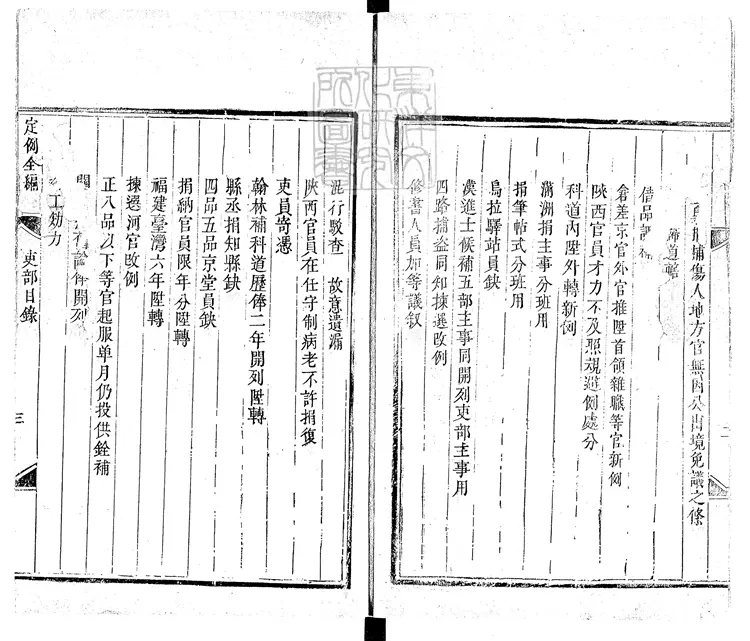 捕傷人地方官無因公出境免議之條
倉差京官外官推陞首領雜職等官新例
陝西官員才力不及照規避例處分
科道內陞外轉新例
滿洲捐主事分班用
捐筆帖式分班用
烏拉驛站員缺
漢進士候補五部主事同開列吏部主事用
四路捕盜同知揀選改例
修書人員加等議叙
混行駁查 故意遺漏
陝西官員在任守制病老不許捐復
吏員寄憑
翰林補科道歷俸二年開列陞轉
縣丞捐知縣缺
四品五品京堂員缺
捐納官員限年分陞轉
福建臺灣六年陞轉
揀選河官改例
正八品以下等官起服单月仍投供銓補
開列
工効力
定例全編 吏部目錄 三